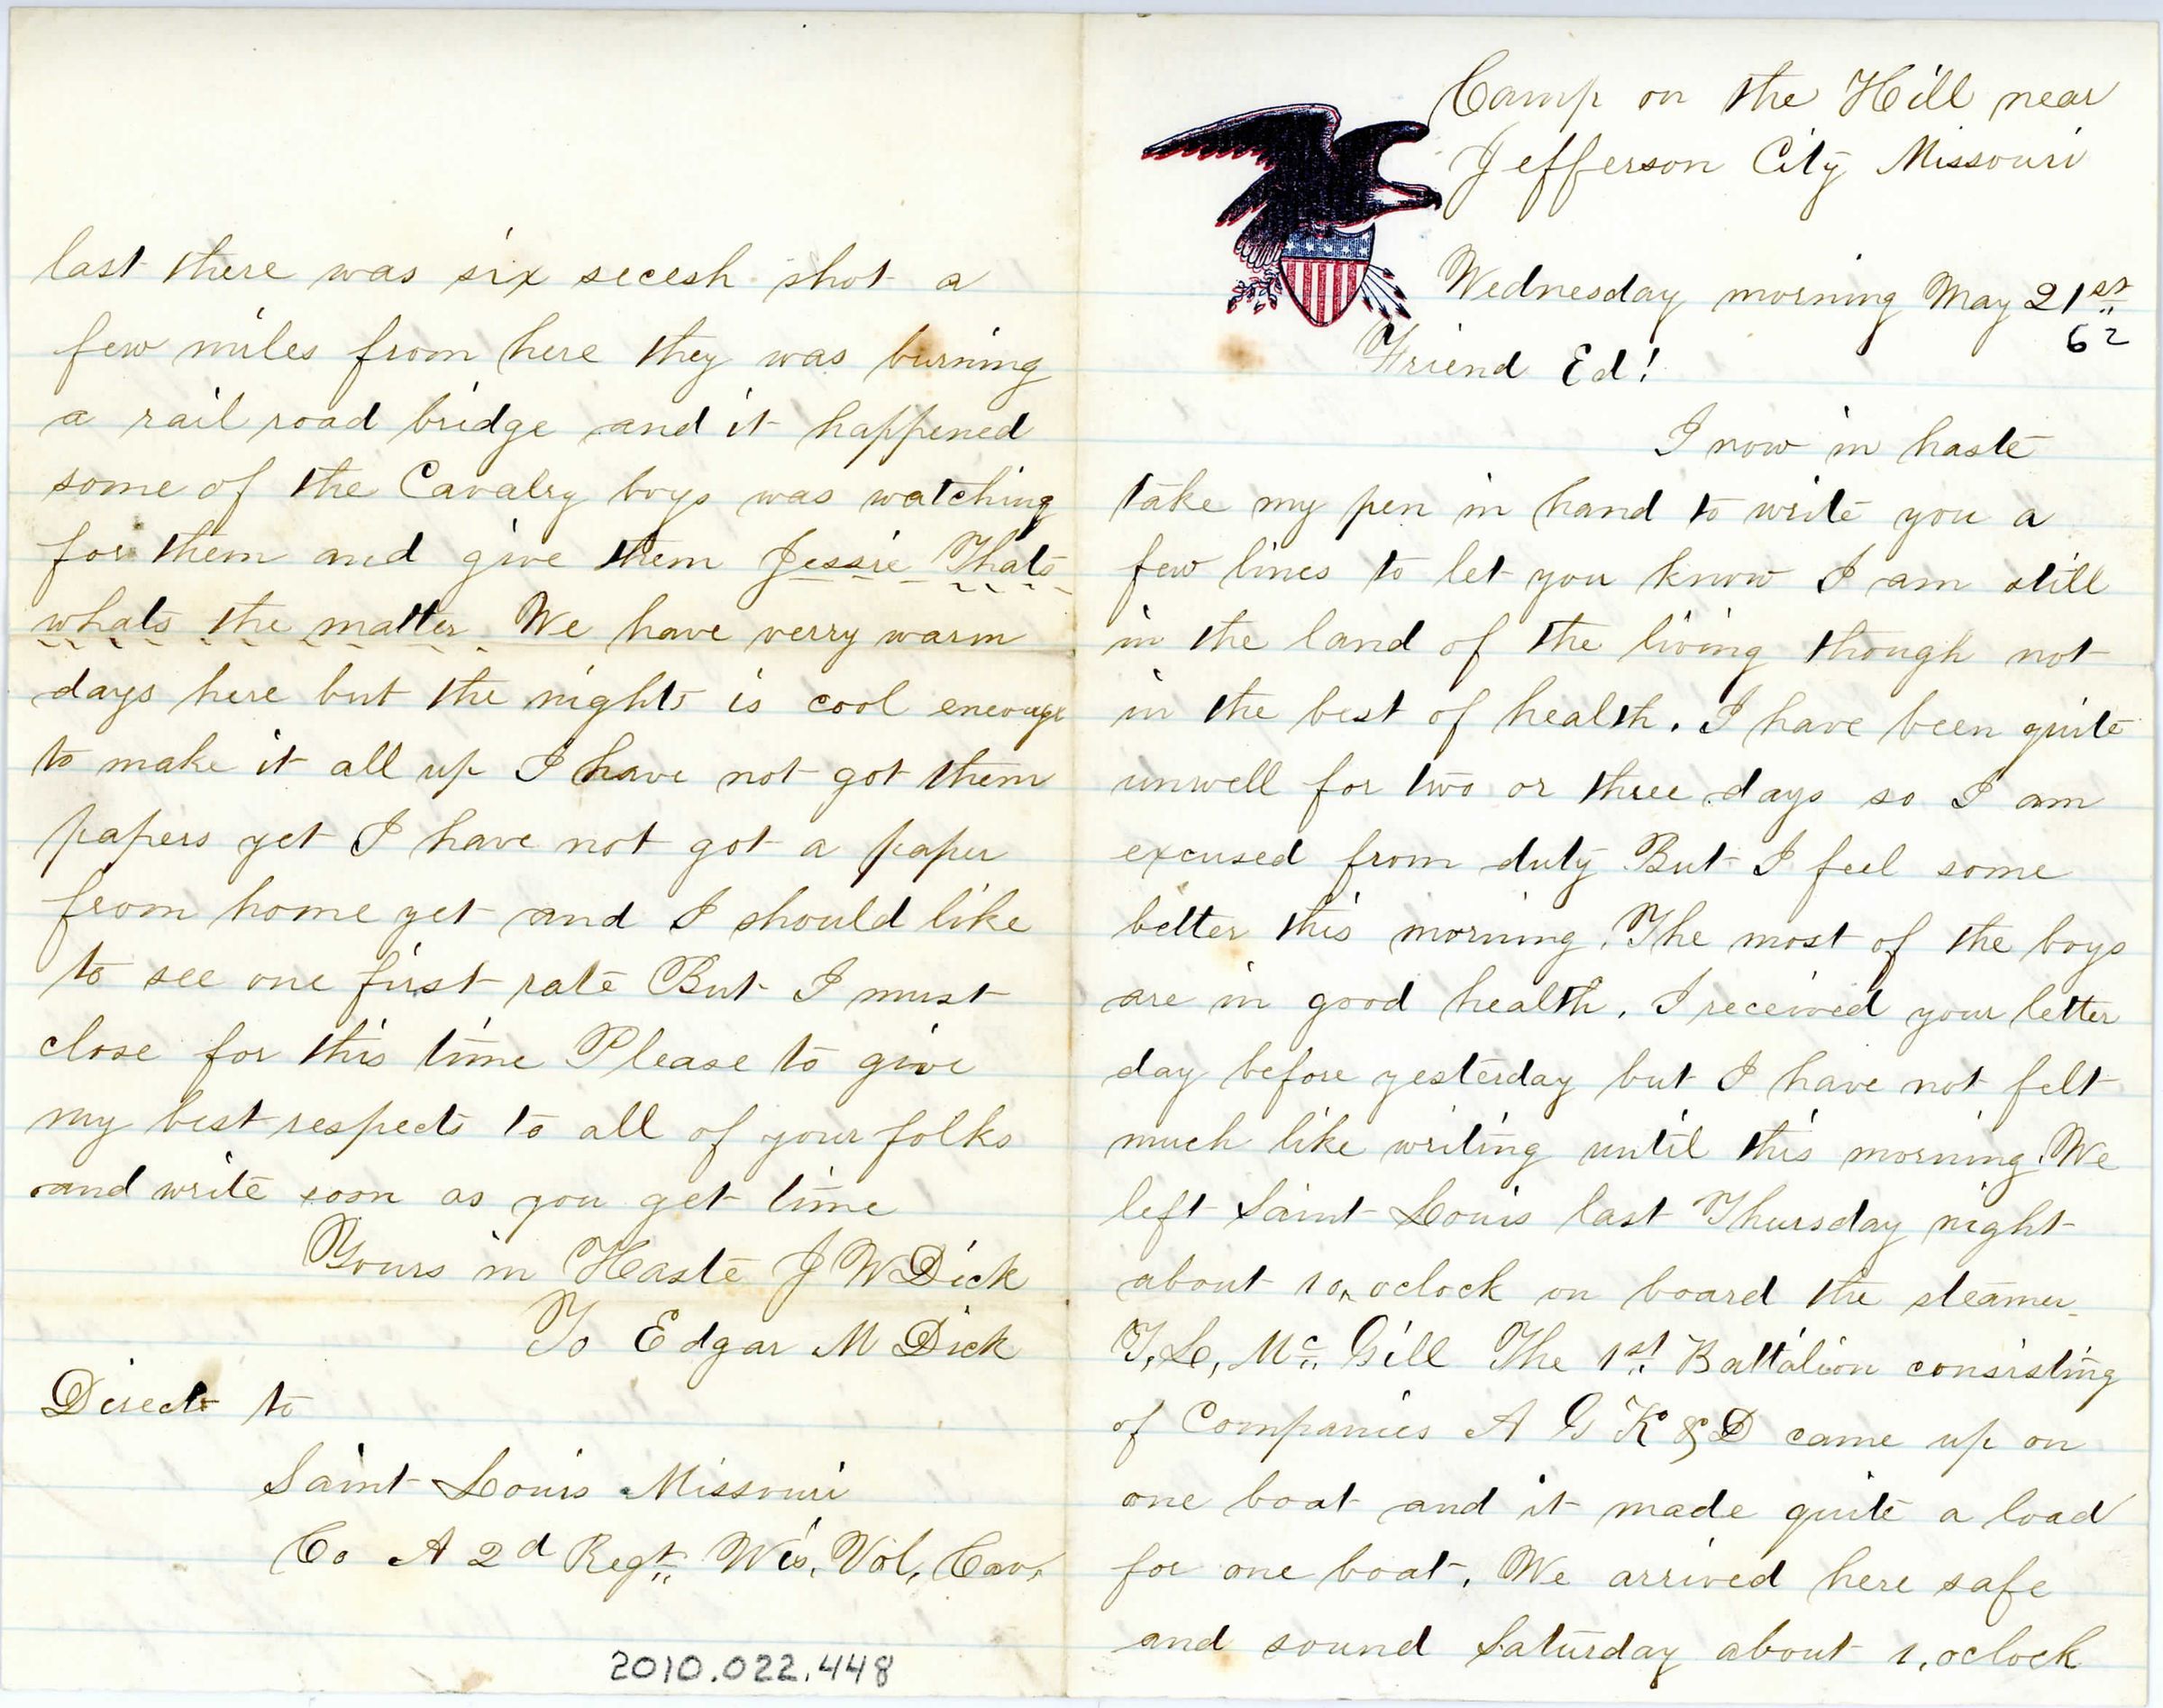 Camp on the Hill near
Jefferson City Missouri
Wednesday morning May 21st
62
Friend Ed!
I now in haste
take my pen in hand to write you a
few lines to let you know I am still
in the land of the living though not
in the best of health. I have been quite
unwell for two or three days so I am
excused from duty But I feel some
better this morning. The most of the boys
are in good health. I received your letter
day before yesterday but I have not felt
much like writing until this morning. We
left Saint Louis last Thursday night
about 10, oclock on board the steamer
T, L, Mc Gill The 1st Battalion consisting
of Companies A G K & D came up on
one boat and it made quite a load
for one boat. We arrived here safe
and sound Saturday about 1, oclock
last there was six secesh shot a
few miles from here they was burning
a rail road bridge and it happened
some of the Cavalry boys was watching
for them and give them Jessie Thats
whats the matter. We have verry warm
days here but the nights is cool enough
to make it all up I have not got them
papers yet I have not got a paper
from home yet and I should like
to see one first rate But I must
close for this time Please to give
my best respects to all of your folks
and write soon as you get time
Yours in Haste J W Dick
To Edgar M Dick
Direct to
Saint Louis Missouri
Co A 2d Regt. Wis. Vol, Cav,
2010.022.448